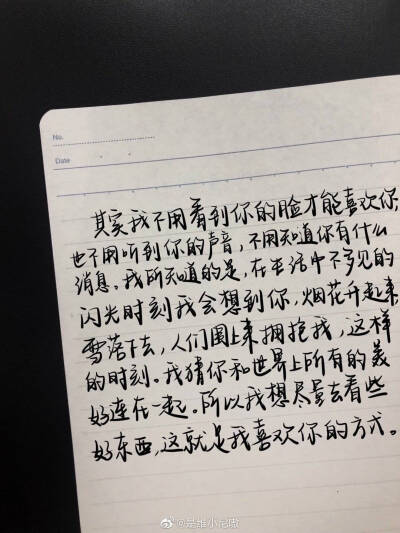 No.
Date
其实我不用看到你的脸才能喜欢你,
也不用听到你的声音,不用知道你有什么
消息。我所知道的是,在生活中不多见的
闪光时刻我会想到你,烟花升起来
雪落下去,人们围上来拥抱我,这样
的时刻。我猜你和世界上所有的美
好连在一起。所以我想尽量去看些
好东西,这就是我喜欢你的方式。
@是维小尼嗷